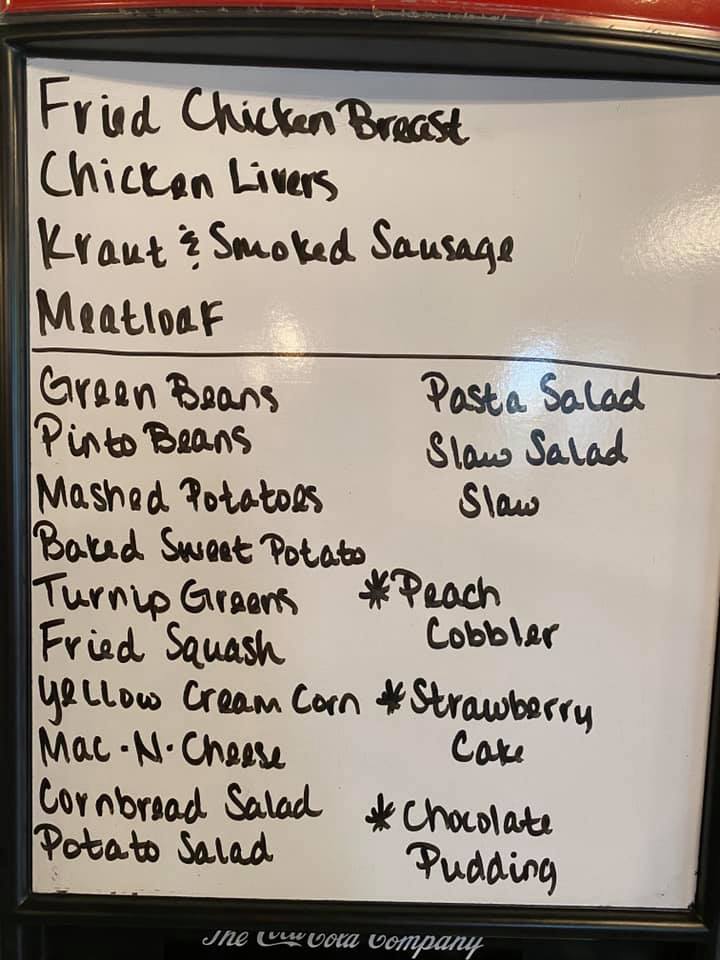 Fried Chicken Breast
Chicken Livers
Kraut & Smoked Sausage
Meatloaf
Green Beans
Pinto Beans
Mashed Potatoes
Baked Sweet Potato
Turnip Greens
Fried Squash
Yellow Cream Corn
Mac·N·Cheese
Cornbread Salad
Potato Salad
Pasta Salad
Slaw Salad
Slaw
*Peach
Cobbler
*Strawberry
Cake
*Chocolate
Pudding
The Coca-Cola Company